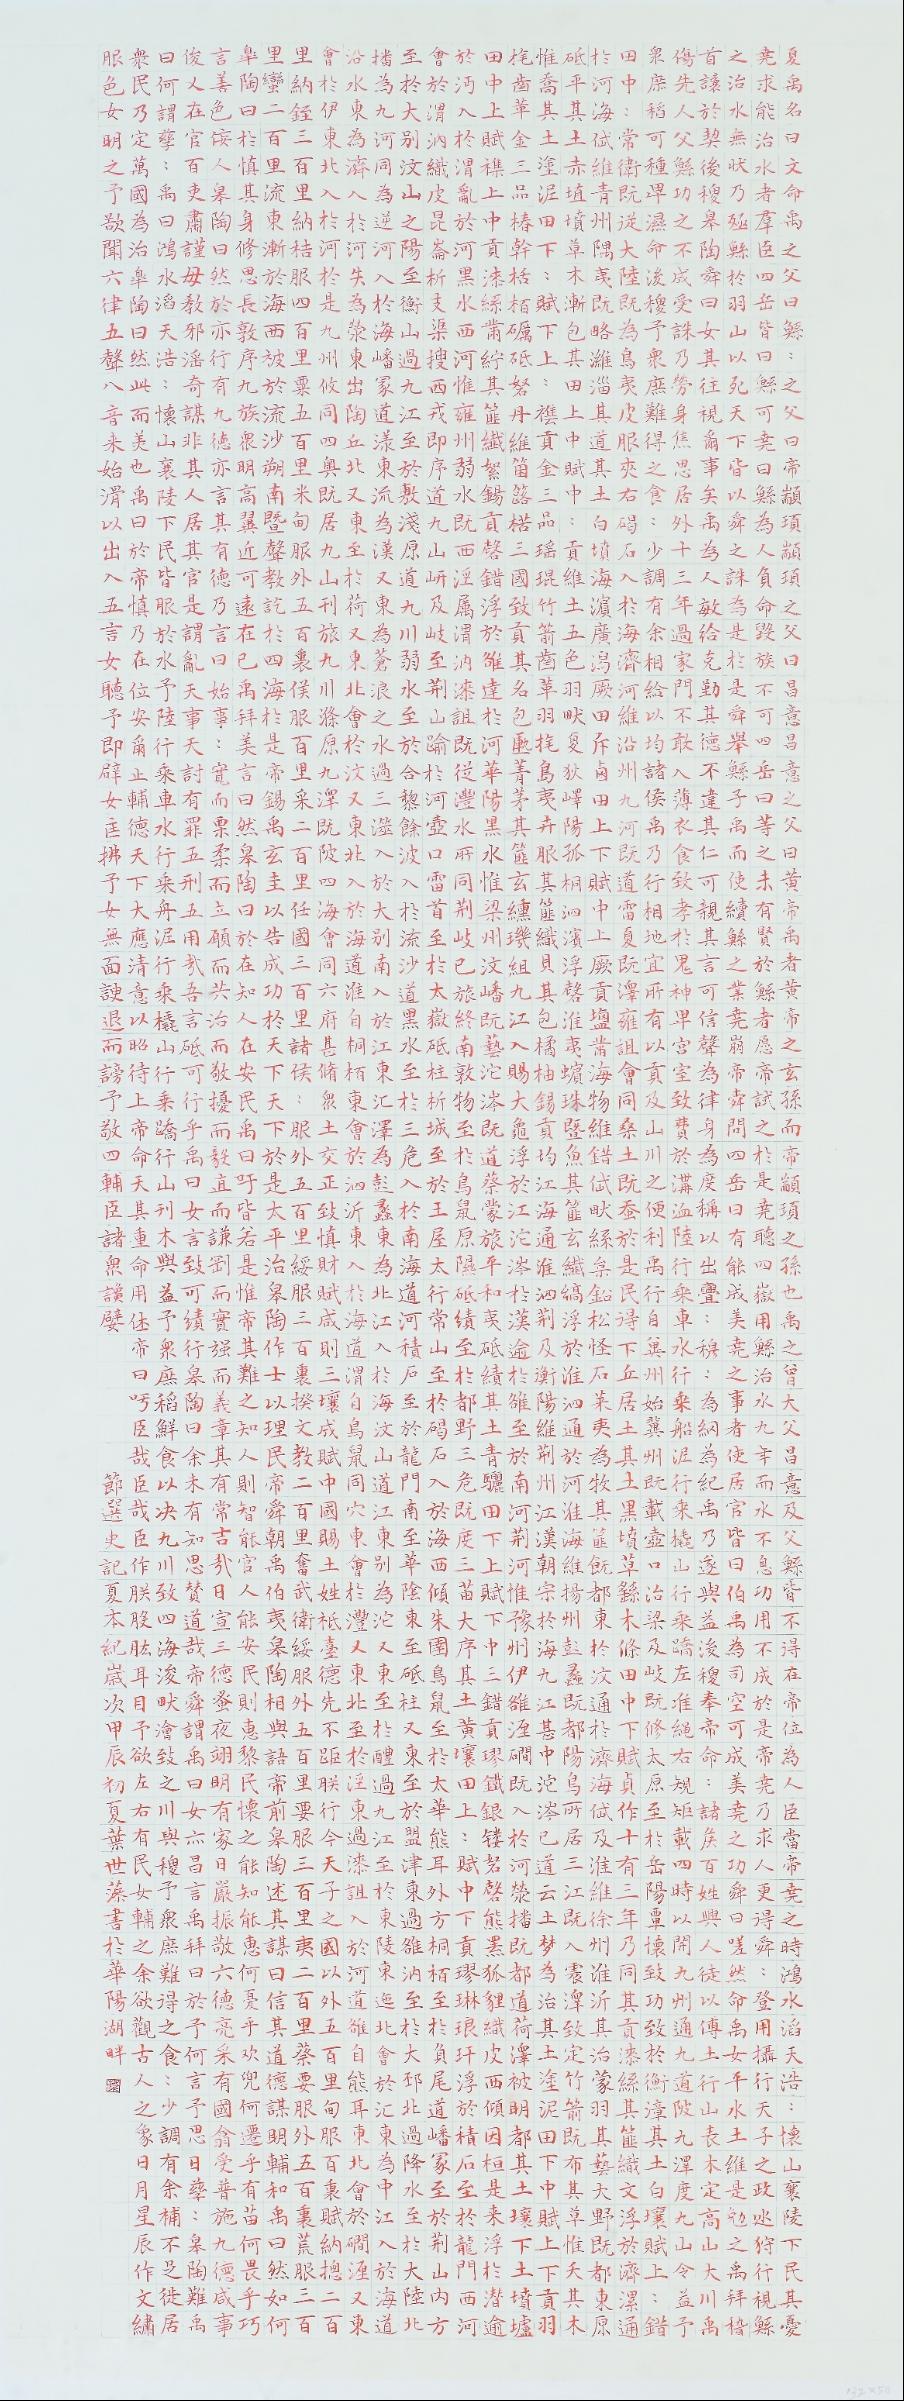 夏禹名曰文命禹之父曰鯀：之父曰帝顓頊顓頊之父曰昌意昌意之父曰黃帝禹者黃帝之玄孫而帝顓頊之孫也禹之曾大父昌意及父鯀皆不得在帝位為人臣當帝堯之時鴻水滔天浩：懷山襄陵下民其憂
堯求能治水者群臣四岳皆曰鯀可堯曰鯀為人負命毀族不可四岳曰等之未有賢於鯀者愿帝試之於是堯聽四嶽用鯀治水九年而水不息功用不成於是帝堯乃求人更得舜：登用攝行天子之政巡狩行視鯀
之治水無狀乃殛鯀於羽山以死天下皆以舜之誅為是於是舜舉鯀子禹而使續鯀之業堯崩帝舜問四岳曰有能成美堯之事者使居官皆曰伯禹為司空可成美堯之功舜曰嗟然命禹女平水土維是勉之禹拜稽
首讓於契後稷皋陶舜曰女其往視爾事矣禹為人敏給克勤其德不違其仁可親其言可信聲為律身為度稱以出亹：穆：為綱為紀禹乃遂與益後稷奉帝命：諸侯百姓興人徒以傅土行山表木定高山大川禹
傷先人父鯀功之不成受誅乃勞身焦思居外十三年過家門不敢入薄衣食致孝於鬼神卑宮室致費於溝淢陸行乘車：水行乘船泥行乘橇山行乘檋左准繩右規矩載四時以開九州通九道陂九澤度九山令益予
眾庶稻可種卑濕命後稷予眾庶難得之食：少調有余相給以均諸侯禹乃行相地宜所有以貢及山川之便利禹行自冀州始冀州既載壺口治梁及岐既修太原至於岳陽覃懷致功致於衡漳其土白壤賦上：錯
田中：常衛既從大陸既為鳥夷皮服夾右碣石入於海濟河維沿州九河既道雷夏既澤雍沮會同桑土既蠶於是民得下丘居土其土黑墳草繇木條田中下賦貞作十有三年乃同其貢漆絲其篚織文浮於濟漯：通
於河海岱維青州隅夷既略濰淄其道其土白墳海濱廣潟厥田斥鹵田上下賦中上厥貢鹽絺海物維錯岱畎絲枲鉛松怪石萊夷為牧其篚既都東於汶通於濟海岱及淮維徐州淮沂其治蒙羽其藝大野既都東原
砥平其土赤埴墳草木漸包其田上中賦中：貢維土五色羽畎夏狄嶧陽孤桐泗濱浮磬淮夷蠙珠暨魚其篚玄纖縞浮於淮泗通於河淮海維揚州彭蠡既都陽鳥所居三江既入震澤致定竹箭既布其草惟夭其木
惟喬其土塗泥田下：賦下上：襍貢金三品瑤琨竹箭齒革羽旄鳥夷卉服其篚織貝其包橘柚錫貢均江海通淮泗荊及衡陽維荊州江漢朝宗於海九江甚中沱涔已道云土夢為治其土塗泥田下中賦上下貢羽
旄齒革金三品椿幹栝柏礪砥砮丹維箘簬楛三國致貢其名包匭菁茅其篚玄纁璣組九江入賜大龜浮於江沱涔於漢逾於雒至於南河荊河惟豫州伊雒瀍澗既入於河滎播既都道荷澤被明都其土壤下土墳壚
田中上賦襍上中貢漆絲絺紵其篚纖絮錫貢磬錯浮於雒達於河華陽黑水惟梁州汶嶓既藝沱涔既道蔡蒙旅平和夷砥績其土青驪田下上賦下中三錯貢璆鐵銀鏤砮磬熊羆狐貍織皮西傾因桓是來浮於潛逾
於沔入於渭亂於河黑水西河惟雍州弱水既西涇屬渭汭漆沮既從灃水所同荊岐已旅終南敦物至於鳥鼠原隰砥績至於都野三危既度三苗大序其土黃壤田上：賦中下貢璆琳琅玕浮於積石至於龍門西河
會於渭汭織皮昆崙析支渠搜西戎即序道九山岍及岐至荊山踰於河壺口雷首至於太嶽砥柱析城至於王屋太行常山至於碣石入於海西傾朱圉鳥鼠至於太華熊耳外方桐柏至於負尾道嶓冢至於荊山內方
至於大別汶山之陽至衡山過九江至於敷淺原道九川弱水至於合黎餘波入於流沙道黑水至於三危入於南海道河積石至於龍門南至華陰東至砥柱又東至於盟津東過雒汭至於大邳北過降水至於大陸北
播為九河同為逆河入於海嶓冢道漾東流為漢又東為蒼浪之水過三澨入於大別南入於江東匯澤為彭蠡東為北江入於海汶山道江東別為沱又東至於醴過九江至於東陵東迤北會於匯東為中江入於海道
沿水東為濟入於河失為滎東出陶丘北又東至於荷又東北會於汶又東北入於海道淮自桐柏東會於泗沂東入於海道渭自鳥鼠同穴東會於灃又東北至於涇東過漆沮入於河道雒自熊耳東北會於澗瀍又東
會於伊東北入於河於是九州攸同四奧既居九山刊旅九川滌原九澤既陂四海會同六府甚脩眾土交正致慎財賦咸則三壤成賦中國賜土姓祗臺德先不距朕行今天子之國以外五百里甸服百里賦納總二百
里納銍三百里納秸服四百里粟五百里米甸服外五百里侯服百里采二百里任國三百里諸侯：服外五百里綏服三百里揆文教二百里奮武衛綏服外五百里要服三百里夷二百里蔡要服外五百里荒服三百
里蠻二百里流東漸於海西被於流沙朔南暨聲教訖於四海於是帝錫禹玄圭以告成功於天下天下於是太平治皋陶作士以理民帝舜朝禹伯夷皋陶相與語帝前皋陶述其謀曰信其道德謀明輔和禹曰然如何
皋陶曰於慎其身修思長敦序九族眾明高翼近可遠在已禹拜美言曰然皋陶曰於在知人在安民禹曰吁皆若是惟帝其難之知人則智能官人能安民則惠黎民懷之能知能惠何憂乎欢兜何遷乎有苗何畏乎巧
言善色佞人皋陶曰然於亦行有九德亦言其有德乃言曰始事：寬而栗柔而立願而共治而敬擾而毅直而謙剛而實强而義章其有常吉哉日宣三德蚤夜翊明有家日嚴振敬六德亮采有國翕受普施九德咸事
俊乂在官百吏肅謹毋教邪淫奇謀非其人居其官是謂亂天事天討有罪五刑五用哉吾言砥可行乎禹曰女言致可績行皋陶曰余未有知思贊道哉帝舜謂禹曰女亦昌言禹拜曰於予何言予思日孳：皋陶難禹
曰何謂孳：禹曰鴻水滔天浩：懷山襄陵下民皆服於水予陸行乘車水行乘舟泥行乘橇山行乘檋行山刊木與益予眾庶稻鮮食以决九川致四海浚畎澮致之川與稷予眾庶難得之食：少調有余補不足徙居
眾民乃定萬國為治皋陶曰然此而美也禹曰於帝慎乃在位安爾止輔德天下大應清意以昭待上帝命天其重命用休帝曰吁臣哉臣哉臣作朕股肱耳目予欲左右有民女輔之余欲觀古人之象日月星辰作文繡
服色女明之予欲聞六律五聲八音來始滑以出入五言女聽予即辟女匡拂予女無面諛退而謗予敬四輔臣諸眾讒嬖
節選史記夏本紀歲次甲辰初夏葉世藻書於華陽湖畔